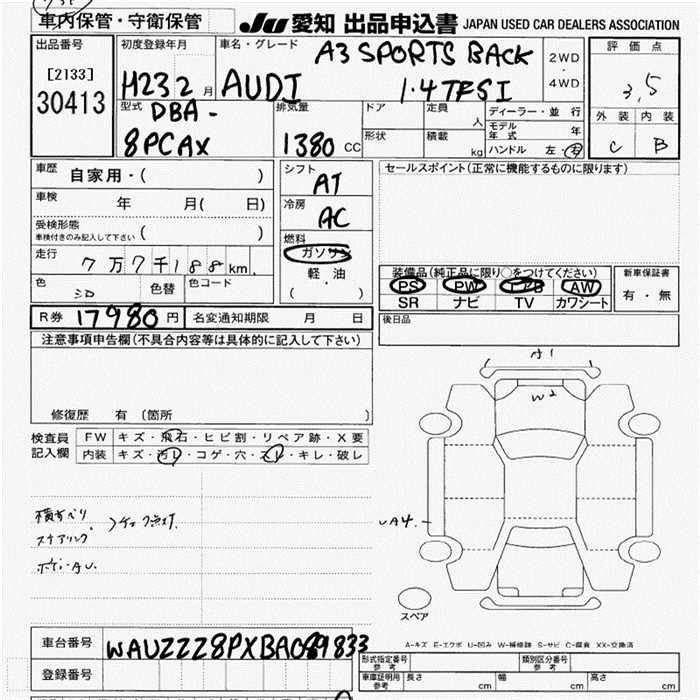 車内保管・守衛保管
JU 愛知 出品申込書 JAPAN USED CAR DEALERS ASSOCIATION
出品番号
[2133]
30413
初度登録年月
H23 2 月
車名・グレード
AUDI A3 SPORTS BACK
1.4 TFSI
2WD
・
4WD
評価点
3.5
外装 内装
C B
型式 DBA-
8PCAX
排気量
1380 CC
ドア
定員 人
形状
積載 kg
ディーラー・並行
モデル年式 年
ハンドル 左・右
車歴 自家用・( )
車検 年 月( 日)
受検形態
車検付きのみ記入して下さい ( )
走行 7万7千188km
色 シロ 色替 色コード
シフト
AT
冷房
AC
燃料
ガソリン
軽・油
( )
セールスポイント(正常に機能するものに限ります)
装備品(純正品に限り○をつけてください)
PS PW エアB AW
SR ナビ TV カワシート
新車保証書
有・無
R券 17980円 名変通知期限 月 日
後日品
注意事項申告欄(不具合内容等は具体的に記入して下さい)
修復歴 有 (箇所 )
検査員
記入欄
FW キズ・飛石・ヒビ割・リペア跡・X要
内装 キズ・汚レ・コゲ・穴・スレ・キレ・破レ
横すべり
ステアリング
チェック点灯.
ボディ・AU.
A1
W2
UA4.
スペア
A-キズ E-エクボ U-凹み W-補修跡 S-サビ C-腐食 XX-交換済
車台番号 WAUZZZ8PXBA089833
登録番号
形式指定番号
参考
類別区分番号
参考
車庫証明用
参考
長さ cm 幅 cm 高さ cm